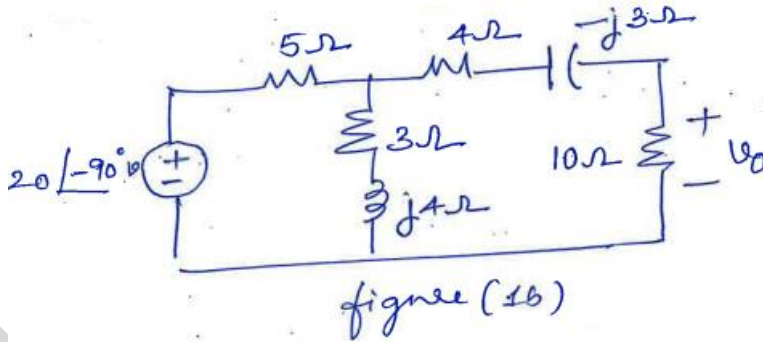 -j3Ω
5Ω
4Ω
20∠-90° v
+
-
3Ω
j4Ω
10Ω
+
v₀
-
figure (1b)